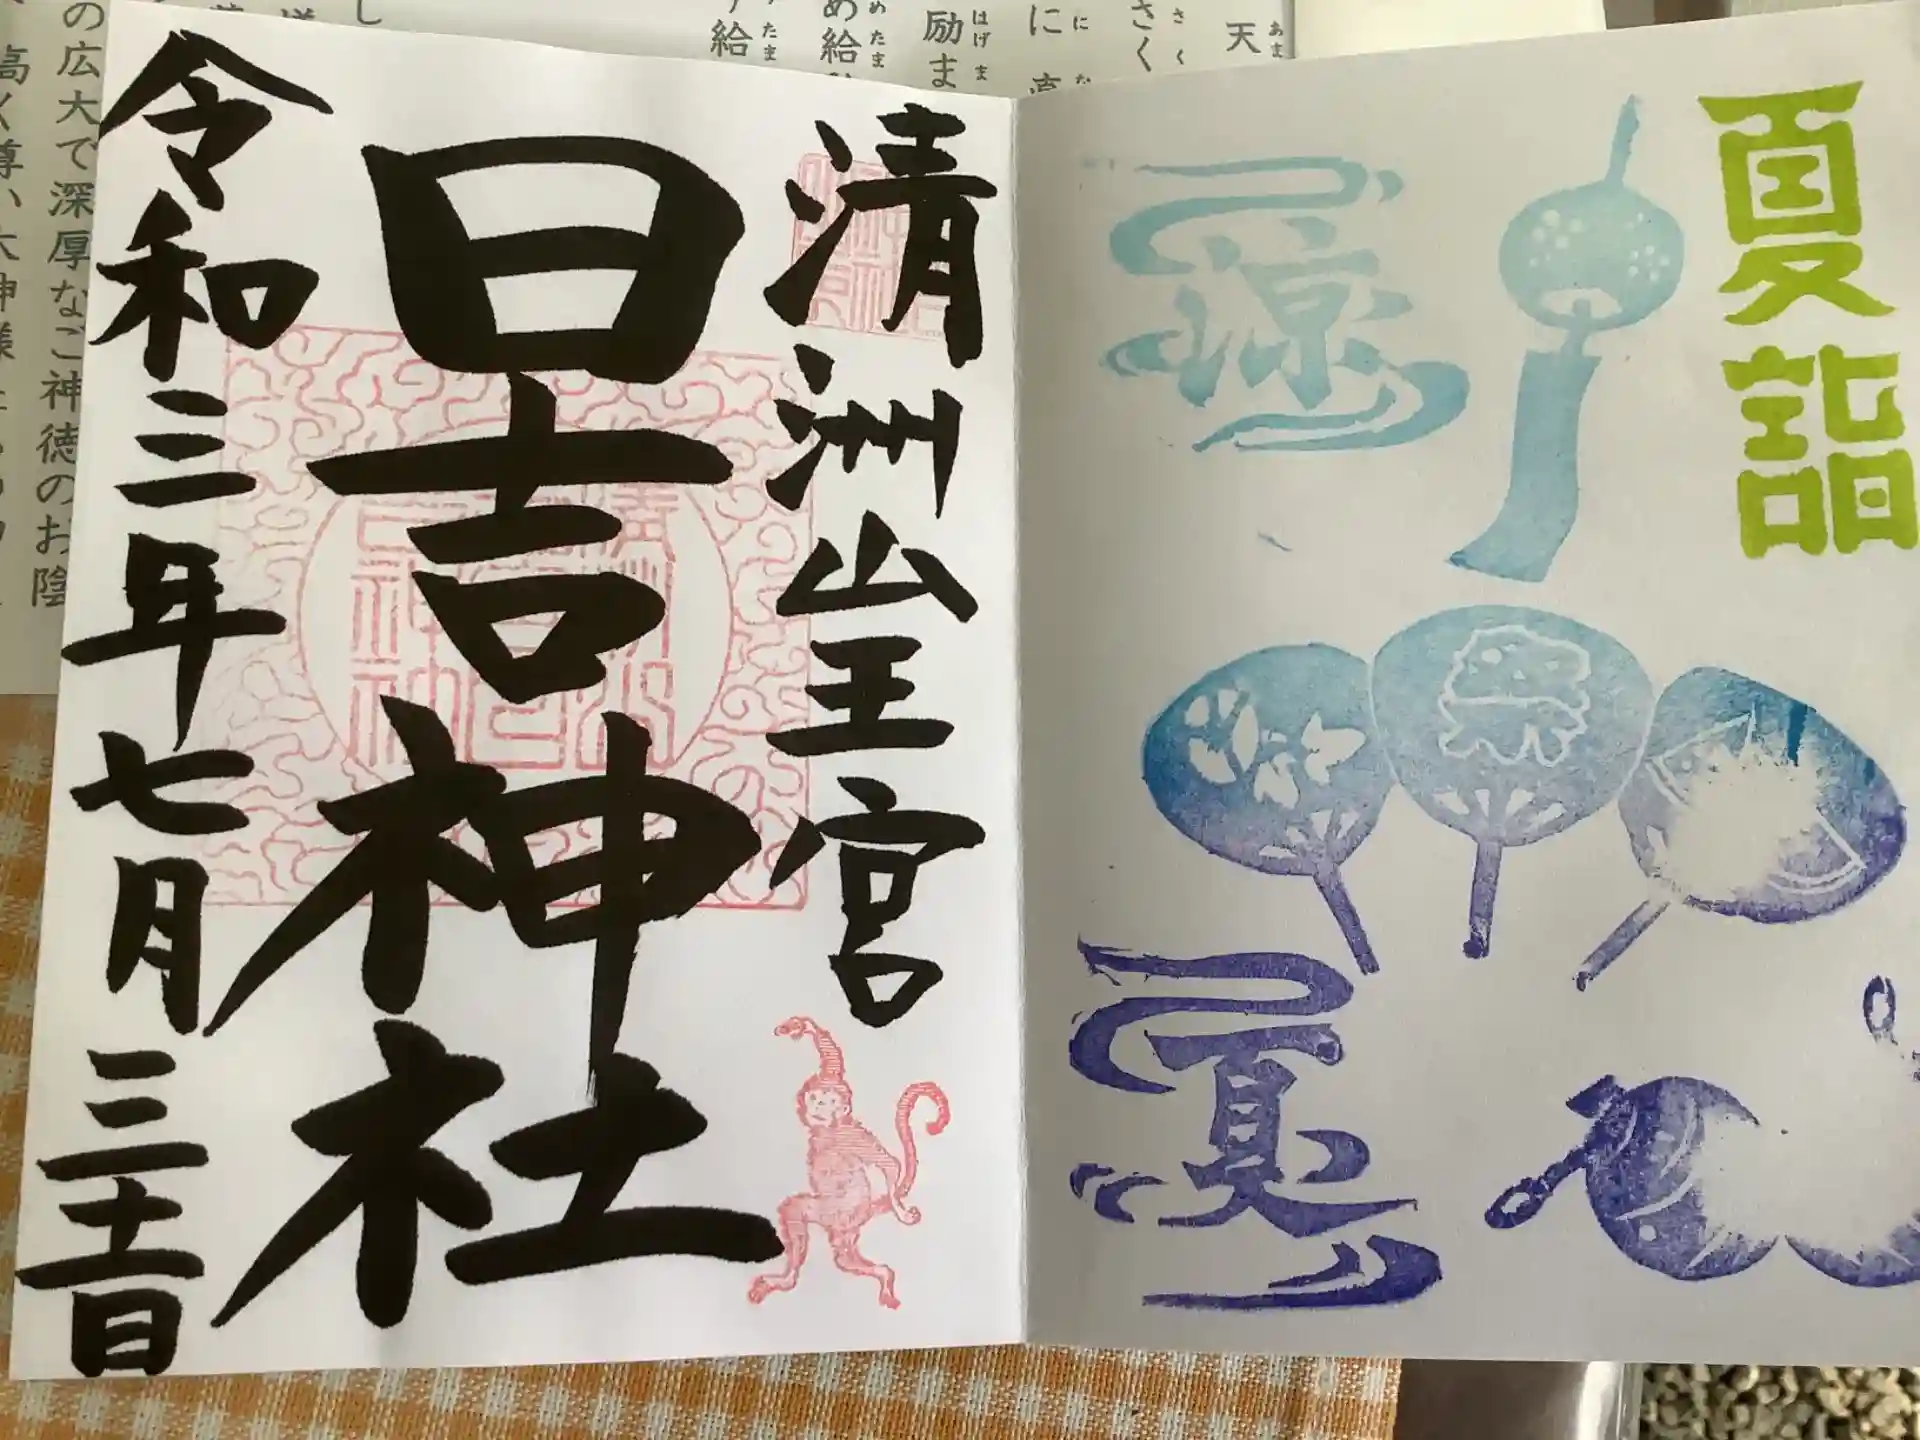 夏詣
涼
祭
夏
清洲山王宮
日吉神社
令和三年七月三十一日
天
さく
に
励ま
め給
給
の広大で深厚なご神徳のお陰
高く尊い大神様